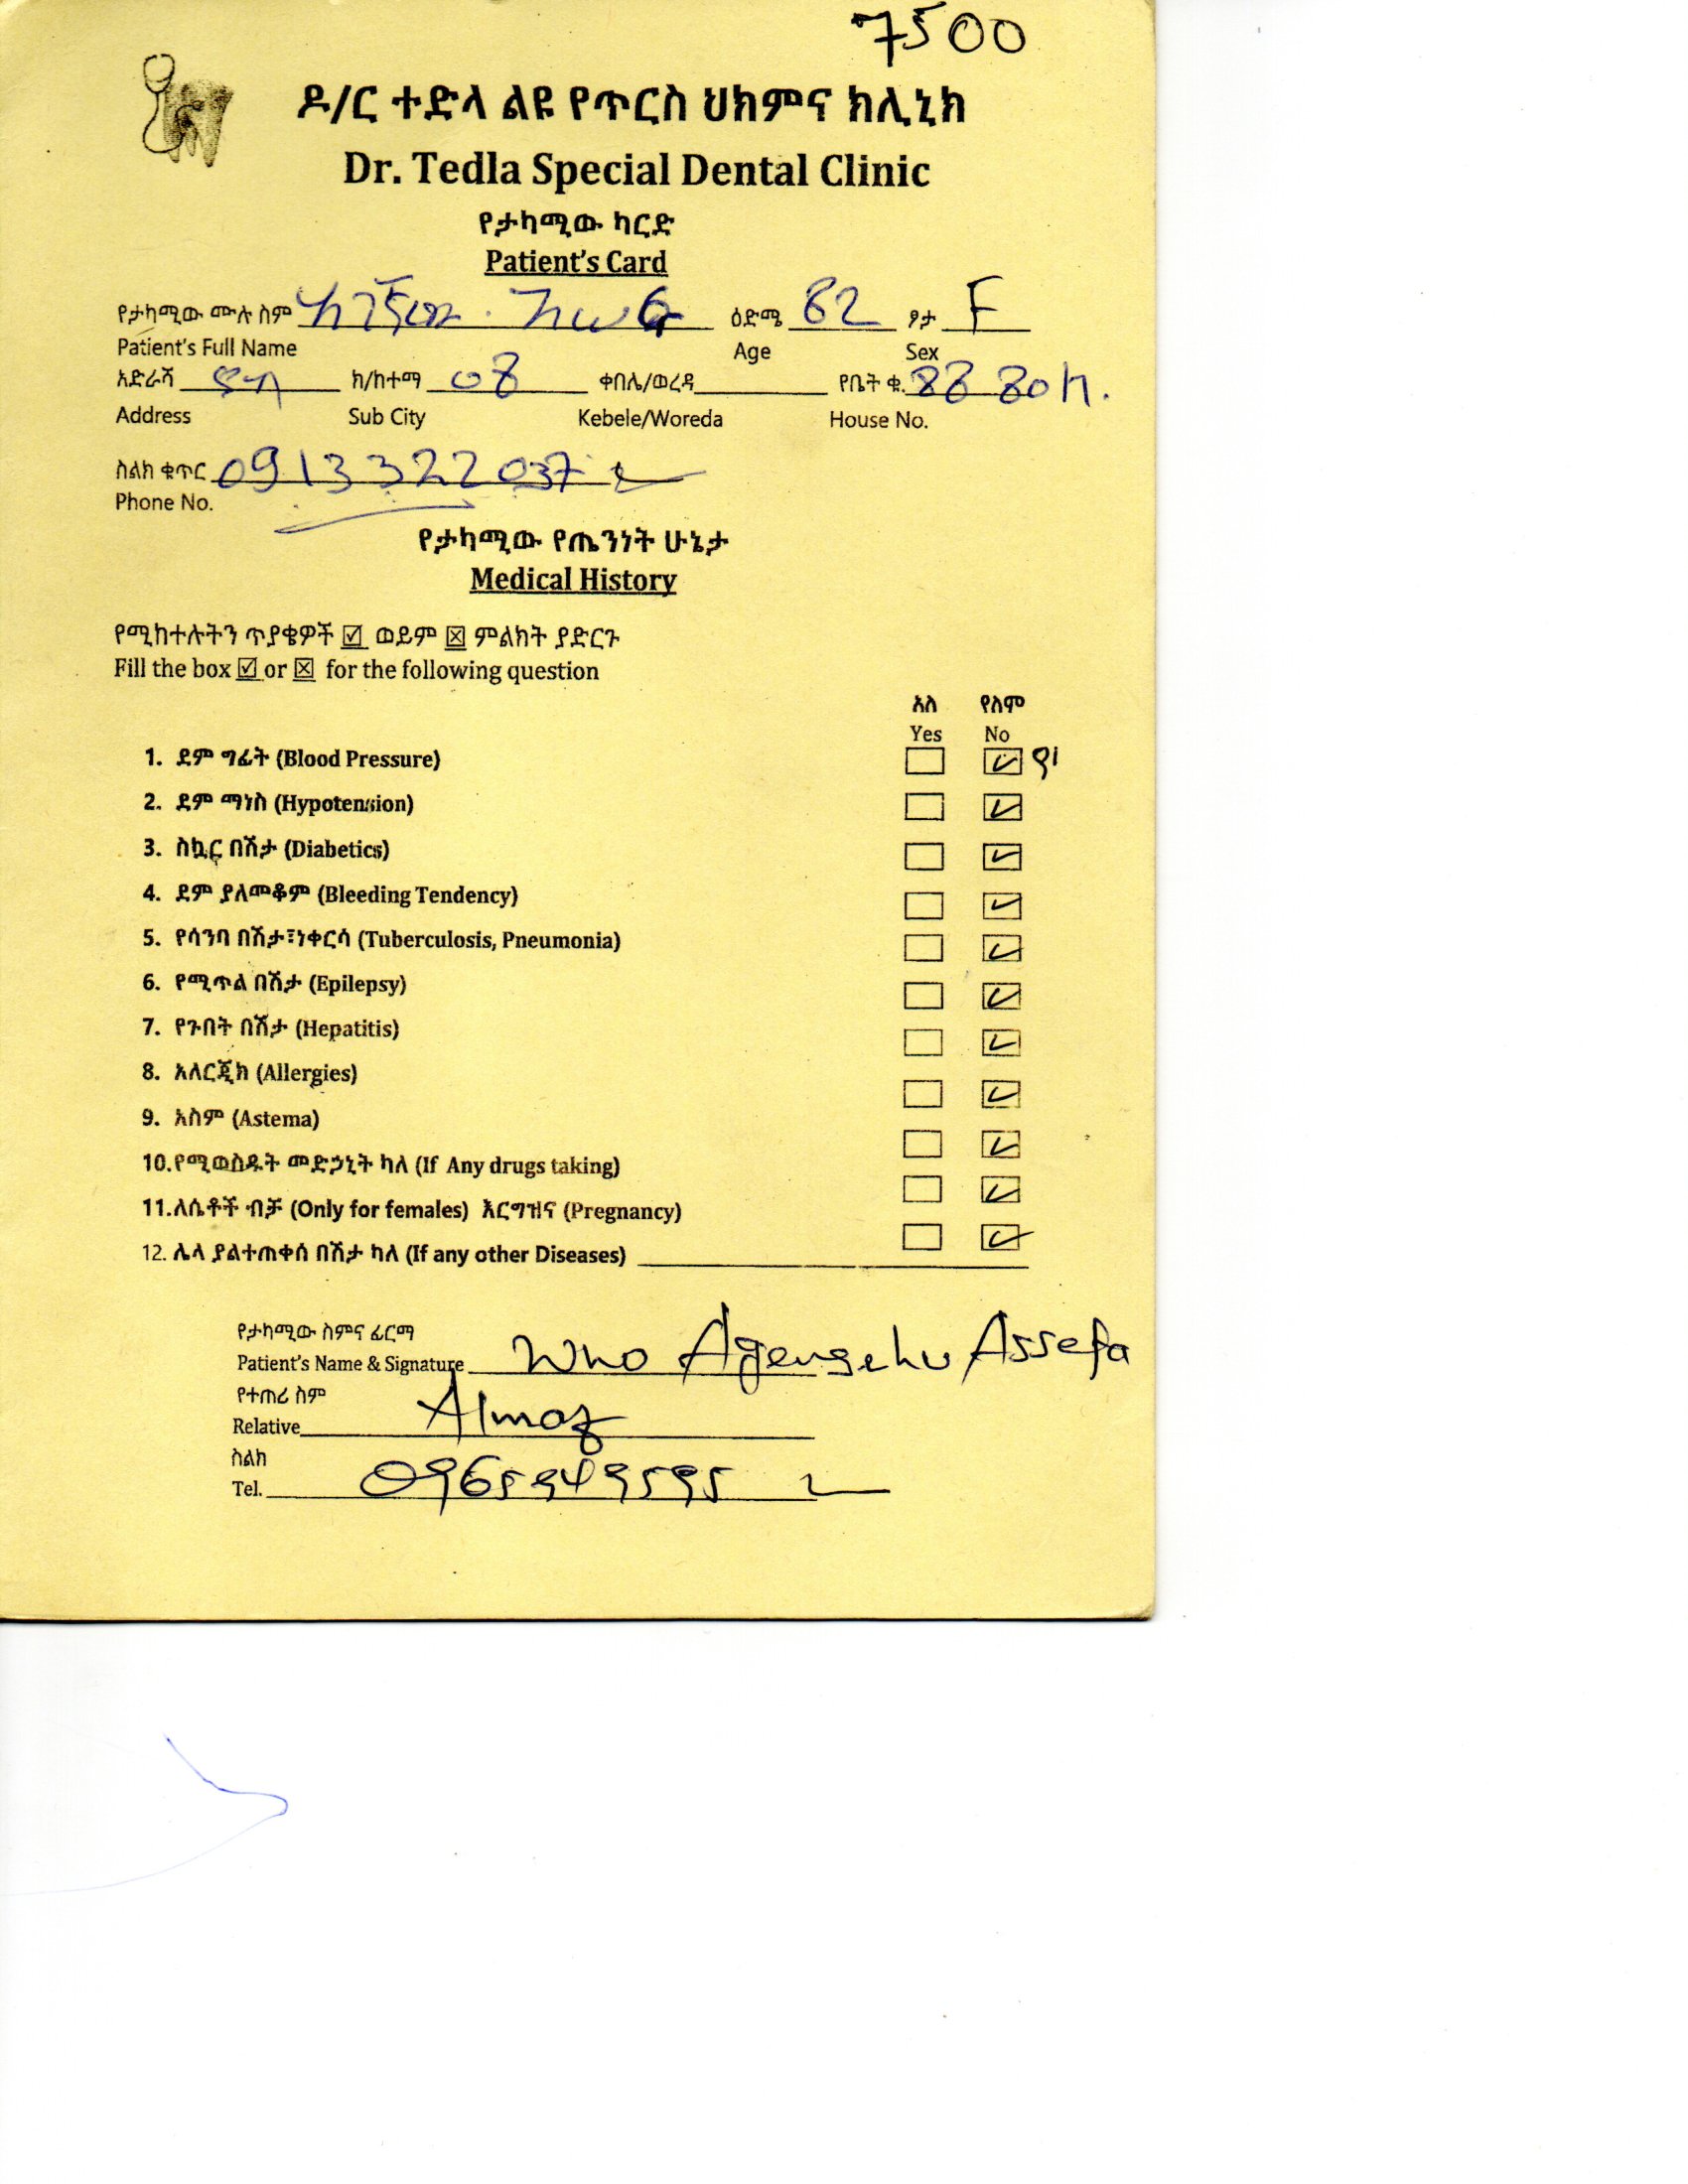 7500
ዶ/ር ተድላ ልዩ የጥርስ ህክምና ክሊኒክ
Dr. Tedla Special Dental Clinic
የታካሚው ካርድ
Patient's Card
የታካሚው ሙሉ ስም ዕድሜ 62 ፆታ F
Patient's Full Name Age Sex
አድራሻ ክ/ከተማ 08 ቀበሌ/ወረዳ የቤት ቁ.
Address Sub City Kebele/Woreda House No.
ስልክ ቁጥር 0913322037
Phone No.
የታካሚው የጤንነት ሁኔታ
Medical History
የሚከተሉትን ጥያቄዎች ☑ ወይም ☒ ምልክት ያድርጉ
Fill the box ☑ or ☒ for the following question
አለ የለም
Yes No
1. ደም ግፊት (Blood Pressure)
2. ደም ማነስ (Hypotension)
3. ስኳር በሽታ (Diabetics)
4. ደም ያለመቆም (Bleeding Tendency)
5. የሳንባ በሽታ፣ነቀርሳ (Tuberculosis, Pneumonia)
6. የሚጥል በሽታ (Epilepsy)
7. የጉበት በሽታ (Hepatitis)
8. አለርጂክ (Allergies)
9. አስም (Astema)
10.የሚወስዱት መድኃኒት ካለ (If Any drugs taking)
11.ለሴቶች ብቻ (Only for females) እርግዝና (Pregnancy)
12. ሌላ ያልተጠቀሰ በሽታ ካለ (If any other Diseases)
የታካሚው ስምና ፊርማ
Patient's Name & Signature Assefa
የተጠሪ ስም
Relative Almaz
ስልክ
Tel. 0965949595